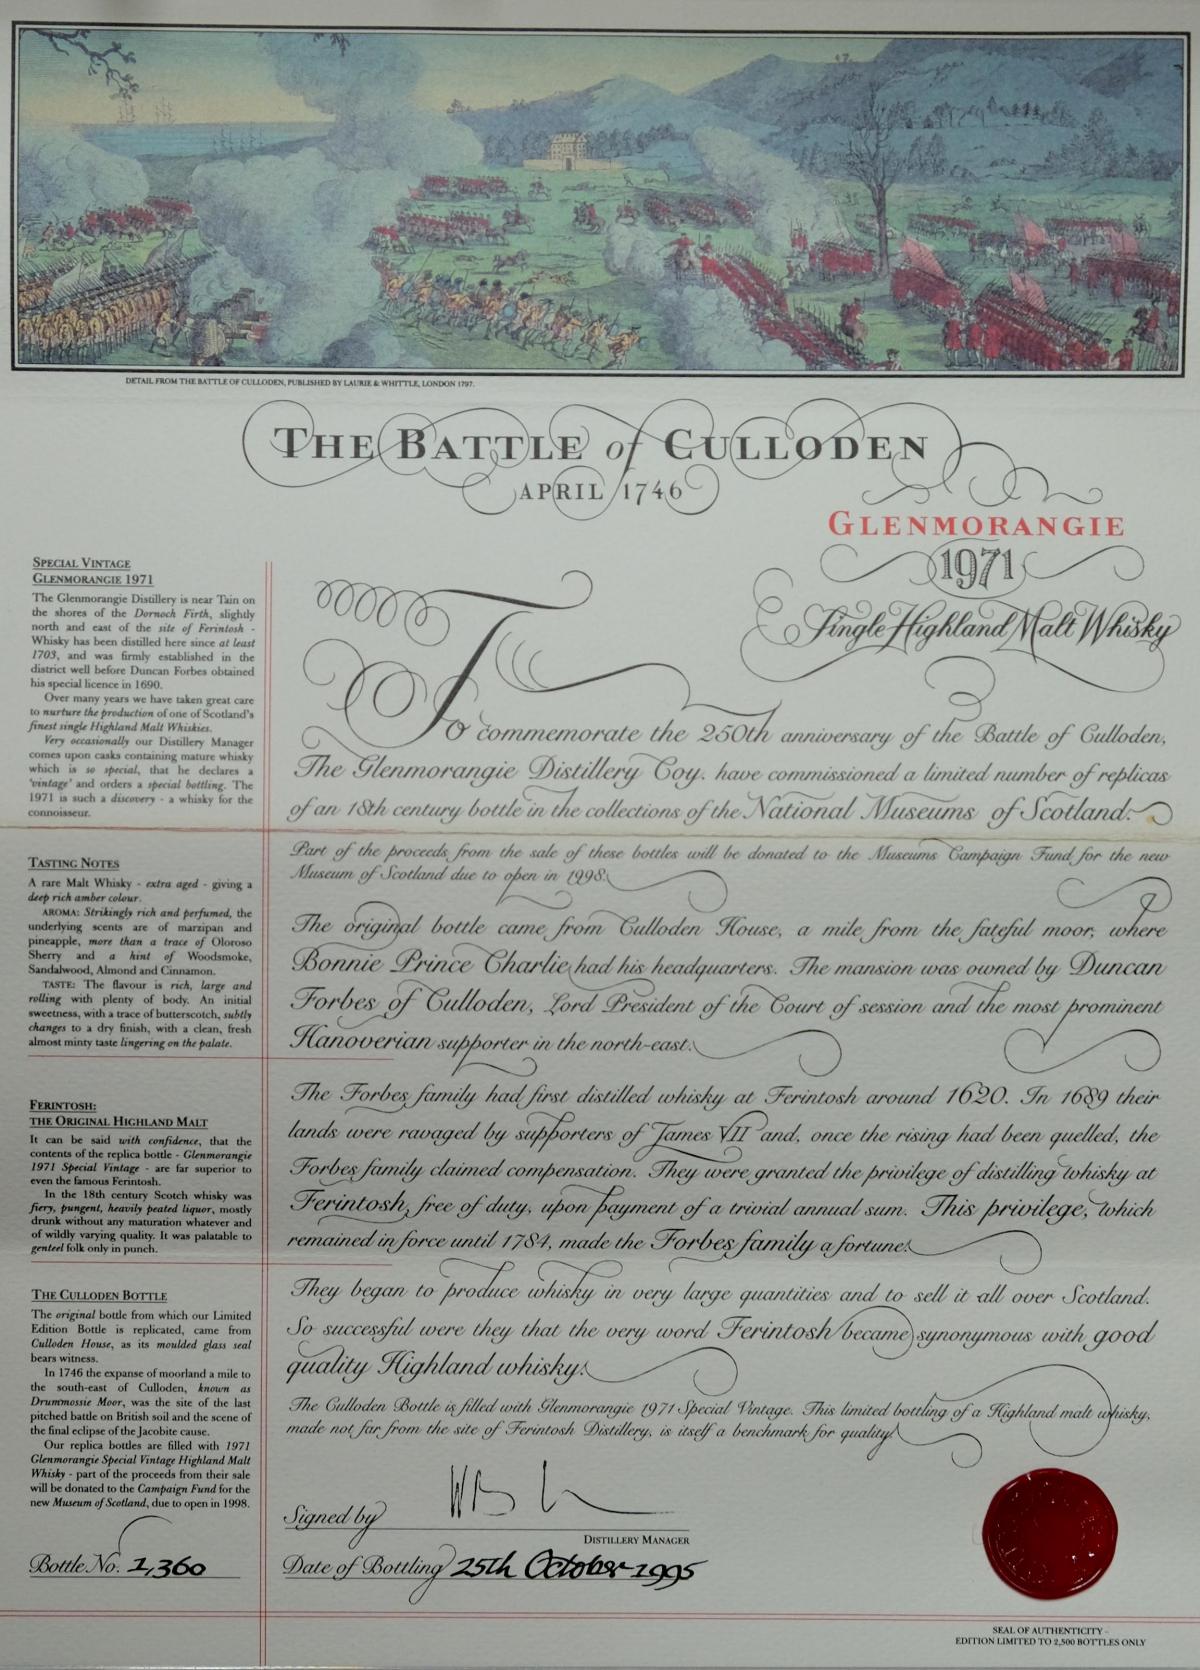 DETAIL FROM THE BATTLE OF CULLODEN, PUBLISHED BY LAURIE & WHITTLE, LONDON 1797.
THE BATTLE of CULLODEN
APRIL 1746
GLENMORANGIE
1971
Single Highland Malt Whisky
SPECIAL VINTAGE
GLENMORANGIE 1971
The Glenmorangie Distillery is near Tain on
the shores of the Dornoch Firth, slightly
north and east of the site of Ferintosh -
Whisky has been distilled here since at least
1703, and was firmly established in the
district well before Duncan Forbes obtained
his special licence in 1690.
Over many years we have taken great care
to nurture the production of one of Scotland's
finest single Highland Malt Whiskies.
Very occasionally our Distillery Manager
comes upon casks containing mature whisky
which is so special, that he declares a
'vintage' and orders a special bottling. The
1971 is such a discovery - a whisky for the
connoisseur.
TASTING NOTES
A rare Malt Whisky - extra aged - giving a
deep rich amber colour.
AROMA: Strikingly rich and perfumed, the
underlying scents are of marzipan and
pineapple, more than a trace of Oloroso
Sherry and a hint of Woodsmoke,
Sandalwood, Almond and Cinnamon.
TASTE: The flavour is rich, large and
rolling with plenty of body. An initial
sweetness, with a trace of butterscotch, subtly
changes to a dry finish, with a clean, fresh
almost minty taste lingering on the palate.
FERINTOSH:
THE ORIGINAL HIGHLAND MALT
It can be said with confidence, that the
contents of the replica bottle - Glenmorangie
1971 Special Vintage - are far superior to
even the famous Ferintosh.
In the 18th century Scotch whisky was
fiery, pungent, heavily peated liquor, mostly
drunk without any maturation whatever and
of wildly varying quality. It was palatable to
genteel folk only in punch.
THE CULLODEN BOTTLE
The original bottle from which our Limited
Edition Bottle is replicated, came from
Culloden House, as its moulded glass seal
bears witness.
In 1746 the expanse of moorland a mile to
the south-east of Culloden, known as
Drummossie Moor, was the site of the last
pitched battle on British soil and the scene of
the final eclipse of the Jacobite cause.
Our replica bottles are filled with 1971
Glenmorangie Special Vintage Highland Malt
Whisky - part of the proceeds from their sale
will be donated to the Campaign Fund for the
new Museum of Scotland, due to open in 1998.
Bottle No. 1,360
To commemorate the 250th anniversary of the Battle of Culloden,
The Glenmorangie Distillery Coy. have commissioned a limited number of replicas
of an 18th century bottle in the collections of the National Museums of Scotland.
Part of the proceeds from the sale of these bottles will be donated to the Museums Campaign Fund for the new
Museum of Scotland due to open in 1998.
The original bottle came from Culloden House, a mile from the fateful moor, where
Bonnie Prince Charlie had his headquarters. The mansion was owned by Duncan
Forbes of Culloden, Lord President of the Court of session and the most prominent
Hanoverian supporter in the north-east.
The Forbes family had first distilled whisky at Ferintosh around 1620. In 1689 their
lands were ravaged by supporters of James VII and, once the rising had been quelled, the
Forbes family claimed compensation. They were granted the privilege of distilling whisky at
Ferintosh, free of duty, upon payment of a trivial annual sum. This privilege, which
remained in force until 1784, made the Forbes family a fortune.
They began to produce whisky in very large quantities and to sell it all over Scotland.
So successful were they that the very word Ferintosh became synonymous with good
quality Highland whisky.
The Culloden Bottle is filled with Glenmorangie 1971 Special Vintage. This limited bottling of a Highland malt whisky,
made not far from the site of Ferintosh Distillery, is itself a benchmark for quality.
Signed by
DISTILLERY MANAGER
Date of Bottling 25th October 1995
SEAL OF AUTHENTICITY -
EDITION LIMITED TO 2,500 BOTTLES ONLY